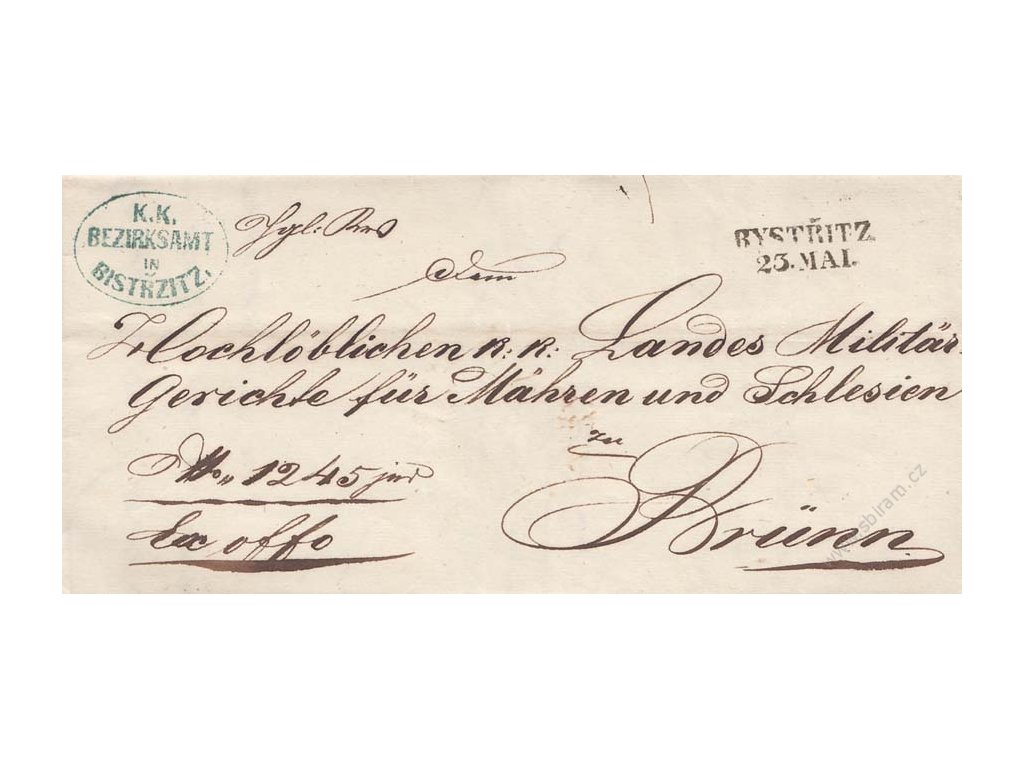 K.K.
BEZIRKSAMT
IN
BISTRZITZ.
BYSTŘITZ
23. MAI.
Dem
Hochlöblichen K: K: Landes Militär
Gerichte für Mähren und Schlesien
zu
Brünn
No 1245 jud
Ex offo
sbiram.cz